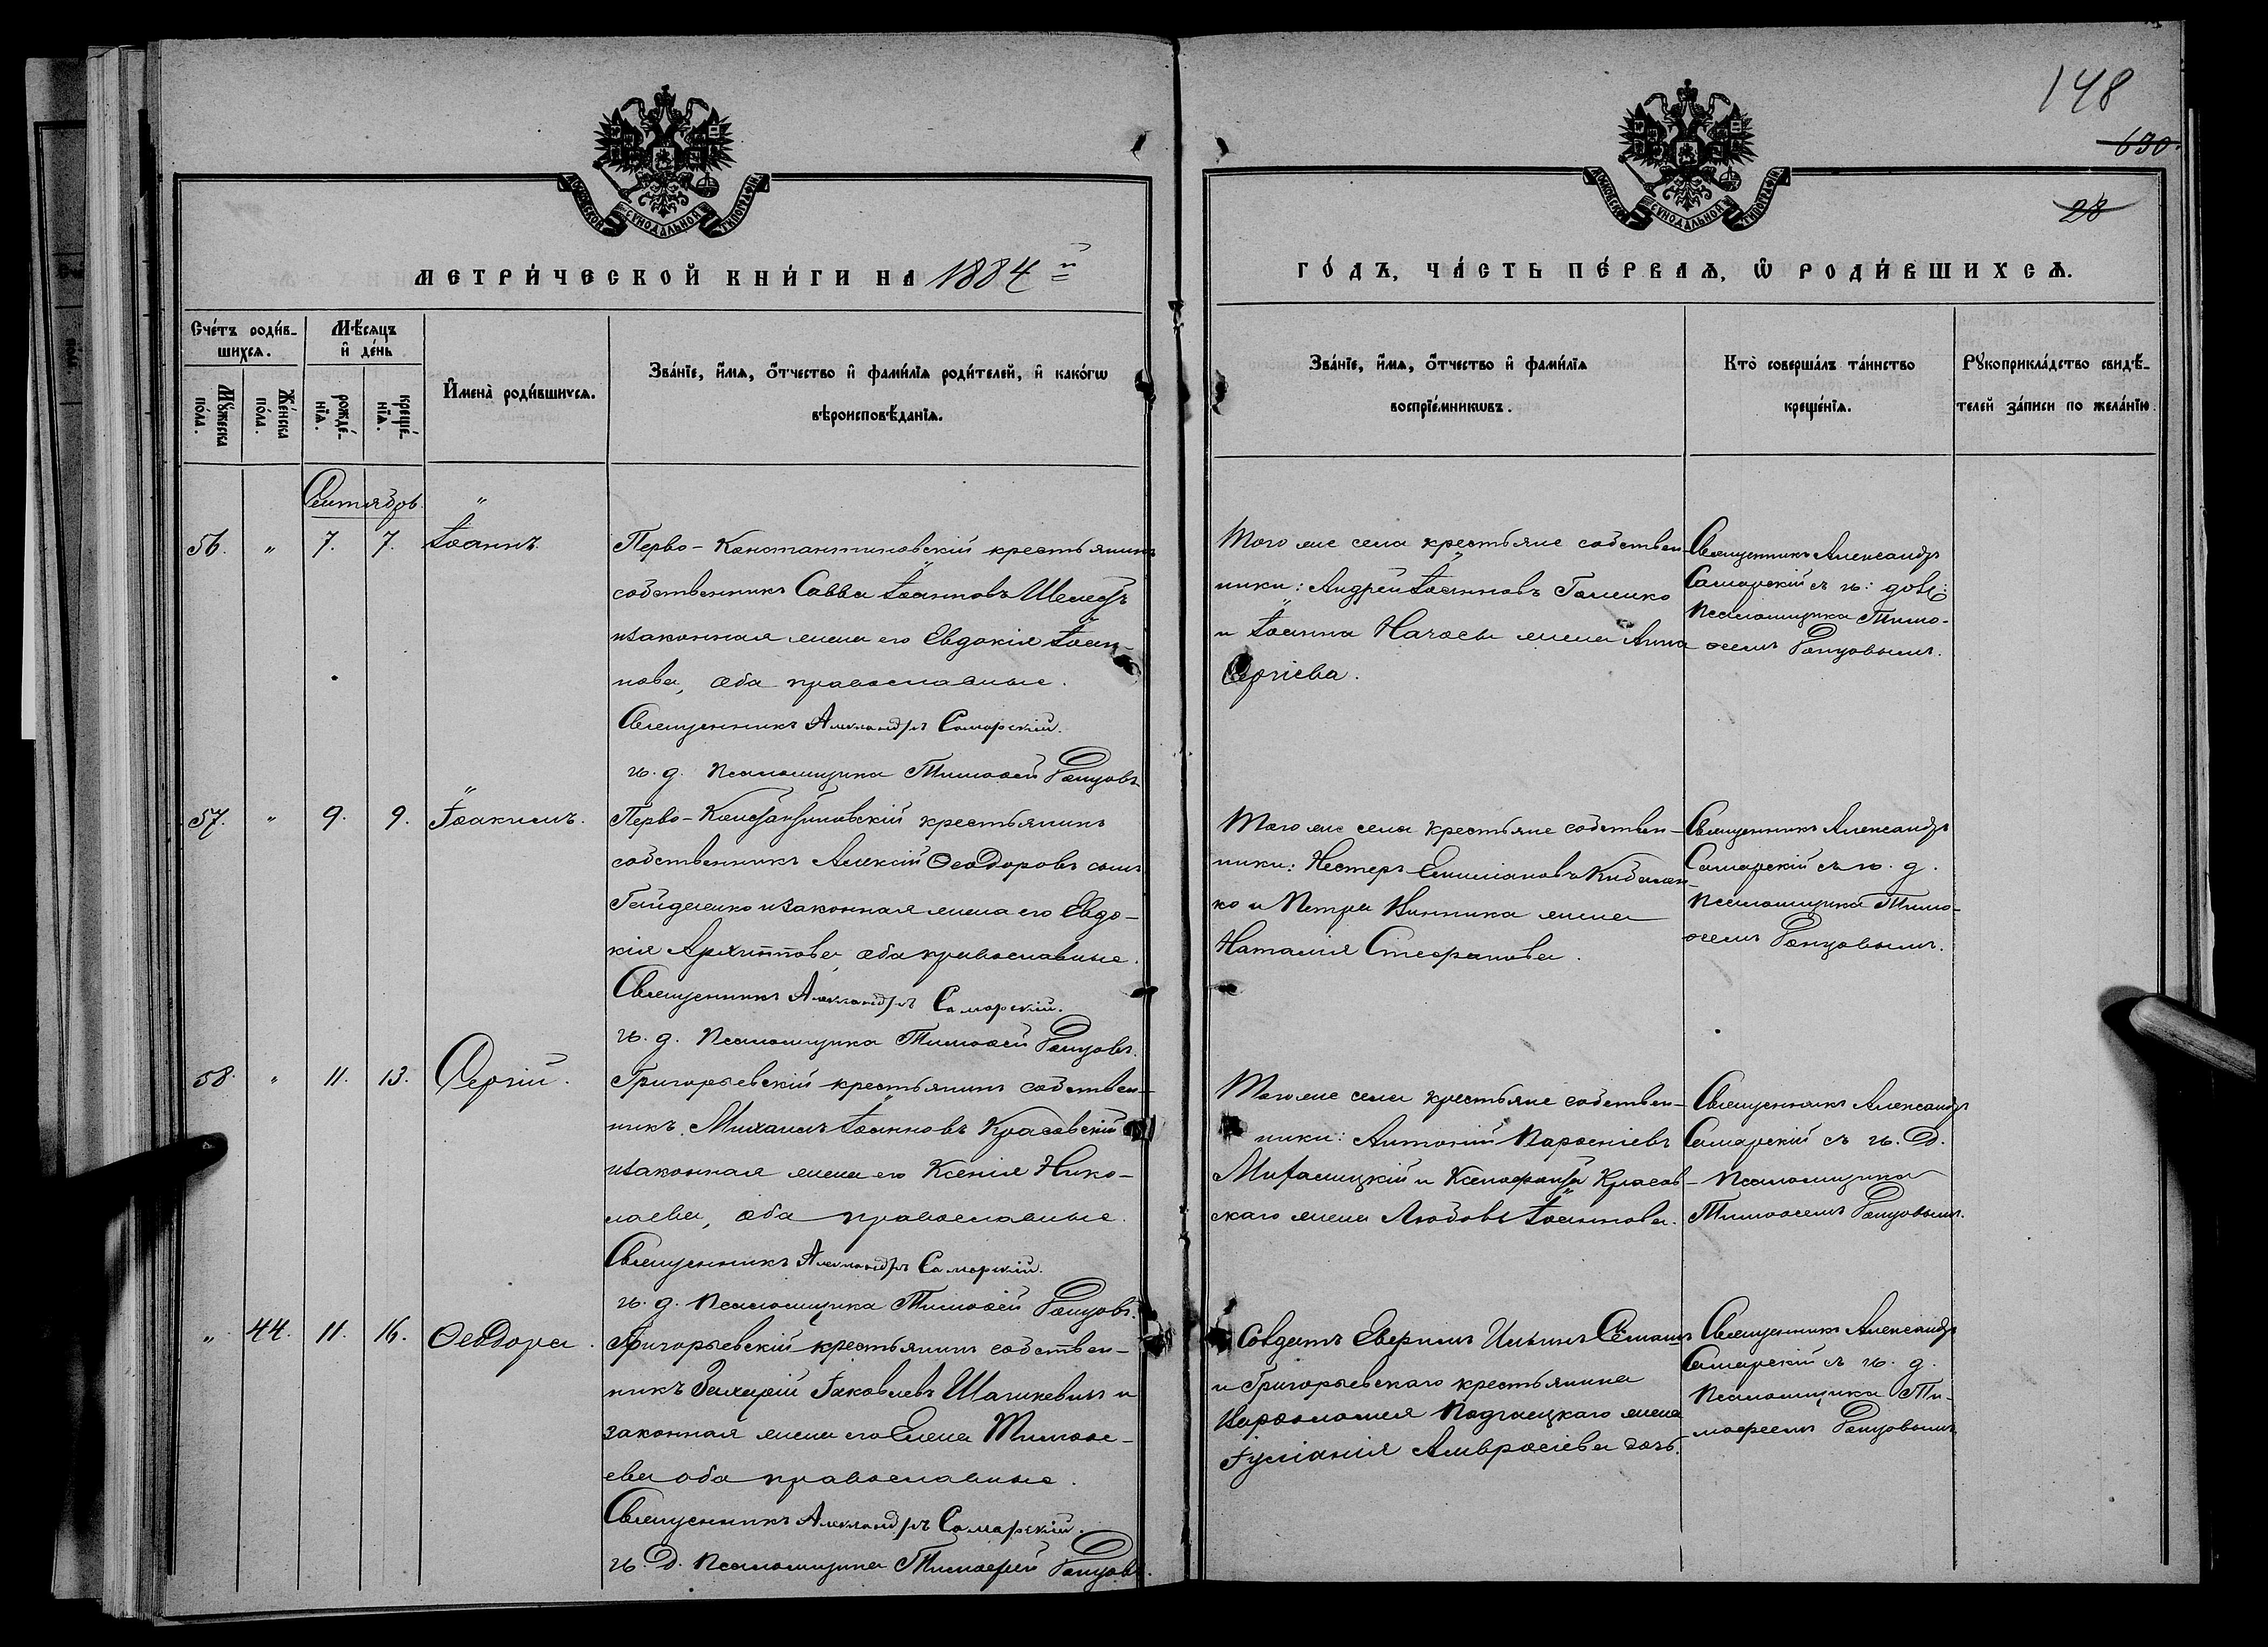 148
630.
28
МОСКОВСКОЙ СѴНОДАЛЬНОЙ ТИПОГРАФІИ
МОСКОВСКОЙ СѴНОДАЛЬНОЙ ТИПОГРАФІИ
МЕТРИ́ЧЕСКОЙ КНИ́ГИ НА 1884 й
ГО́ДЪ, ЧА́СТЬ ПЕ́РВАѦ, Ѡ҆ РОДИ́ВШИХСѦ.
Сче́тъ роди́в-
шихсѧ.
Мꙋ́жеска по́ла.
Же́нска по́ла.
Мѣ́сѧцъ
и҆ де́нь
рожде́-нїѧ.
креще́-нїѧ.
И҆мена̀ роди́вшихсѧ.
Зва́нїе, и҆́мѧ, ѻ҆́тчество и҆ фами́лїѧ роди́телей, и҆ како́гѡ
вѣроисповѣ́данїѧ.
Зва́нїе, и҆́мѧ, ѻ҆́тчество и҆ фами́лїѧ
воспрїе́мникѡвъ.
Кто̀ соверша́лъ та́инство
креще́нїѧ.
Рꙋкоприкла́дство свидѣ́-
телей за́писи по жела́нїю.
Сентябрь
56. " 7. 7. Іоаннъ.
Перво-Константиновскій крестьянинъ
собственникъ Савва Іоанновъ
и законная жена его Евдокія Іоан-
нова, оба православные.
Священникъ Александръ Самарскій.
и. д. Псаломщика Тимоѳей
Того же села крестьяне собствен-
ники: Андрей Іоанновъ
и Іоанна жена Анна
Сергіева.
Священникъ Александръ
Самарскій съ и:
Псаломщика Тимо-
ѳеемъ
57. " 9. 9. Іоакимъ.
Перво-Константиновскій крестьянинъ
собственникъ Алексій Ѳеодоровъ сынъ
Гайденко и законная жена его Евдо-
кія Архиппова оба православные.
Священникъ Александръ Самарскій.
и. д. Псаломщика Тимоѳей
Того же села крестьяне собствен-
ники: Нестеръ Емиліановъ
ко и Петра Винника жена
Наталія Стефанова.
Священникъ Александръ
Самарскій съ и. д.
Псаломщика Тимо-
ѳеемъ
58. " 11. 13. Сергій.
Григорьевскій крестьянинъ собствен-
никъ Михаилъ Іоанновъ Красовскій
и законная жена его Ксенія Нико-
лаева, оба православные.
Священникъ Александръ Самарскій.
и. д. Псаломщика Тимоѳей
Того же села крестьяне собствен-
ники: Антоній Парѳеніевъ
и Ксенофонта Красов-
скаго жена Любовь Іоаннова.
Священникъ Александръ
Самарскій съ и. д.
Псаломщика
Тимоѳеемъ
" 44. 11. 16. Ѳеодора.
Григорьевскій крестьянинъ собствен-
никъ Захарій Іаковлевъ и
законная жена его Елена Тимоѳе-
ева оба православные.
Священникъ Александръ Самарскій.
и. д. Псаломщика Тимофей
Солдатъ Ильинъ
и Григорьевскаго крестьянина
Варѳоломея Подгаецкаго жена
Іуліанія Амвросіева дочь.
Священникъ Александръ
Самарскій съ и. д.
Псаломщика Ти-
мофеемъ